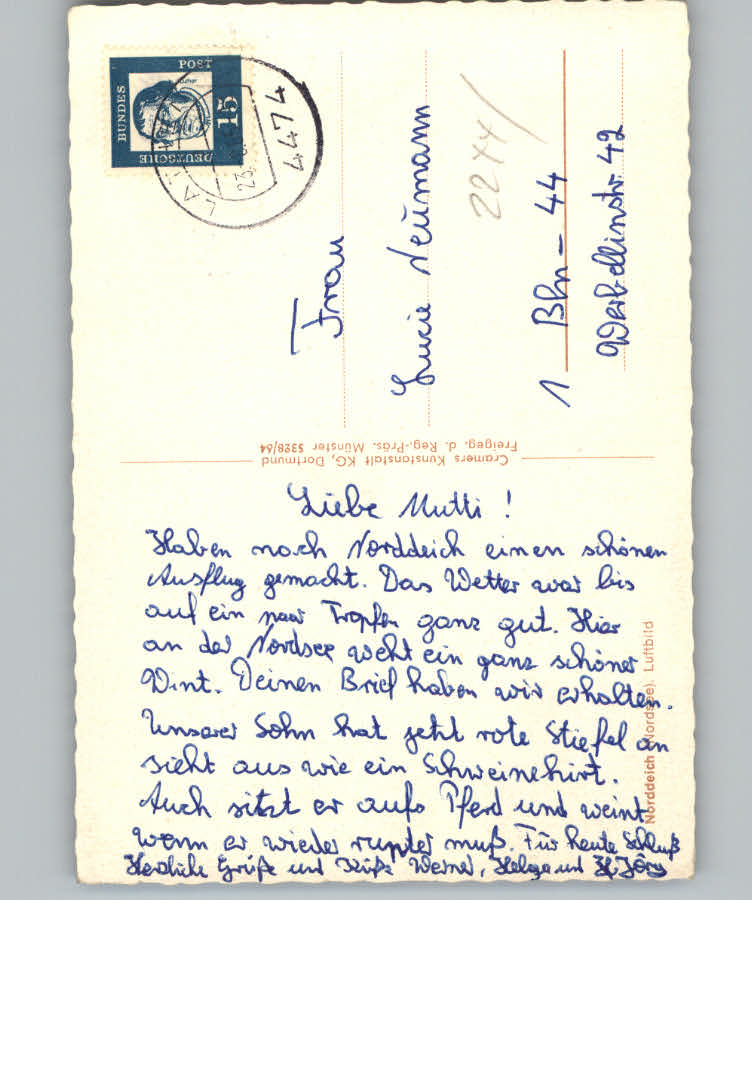 DEUTSCHE
BUNDES
POST
15
4474
Frau
Lucie Neumann
2244/
1 Bln - 44
Werbellinstr. 42
Cramers Kunstanstalt KG, Dortmund
Freigeg. d. Reg.-Präs. Münster 5328/64
Norddeich (Nordsee). Luftbild
Liebe Mutti!
Haben nach Norddeich einen schönen
Ausflug gemacht. Das Wetter war bis
auf ein paar Tropfen ganz gut. Hier
an der Nordsee weht ein ganz schöner
Wint. Deinen Brief haben wir erhalten.
Unserer Sohn hat jetzt rote Stiefel an
sieht aus wie ein Schweinehirt.
Auch sitzt er aufs Pferd und weint
wenn er wieder runter muß. Für heute Schluß
Herzliche Grüße und Küße Werner, Helga und H. Jörg